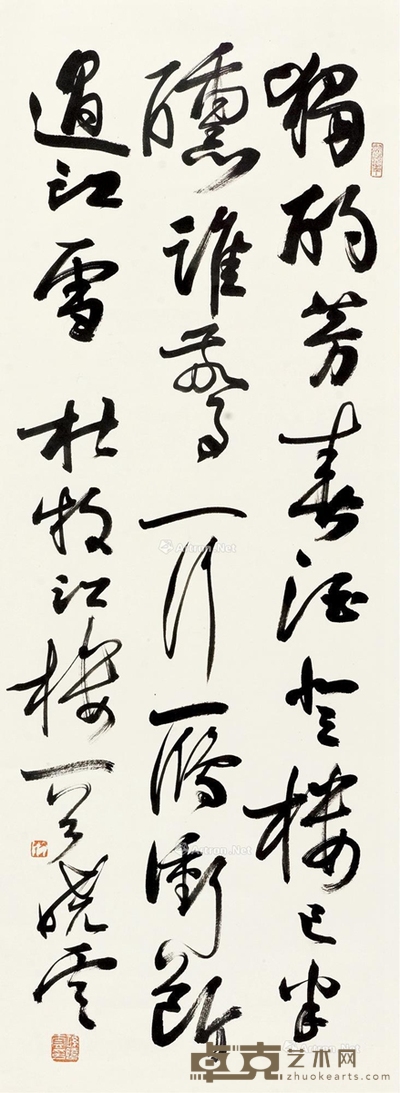 獨酌芳春酒登樓已半
醺誰驚一行鴈衝斷
過江雲 杜牧江樓一首 曉雲
Artron.Net
卓克艺术网
zhuokearts.com